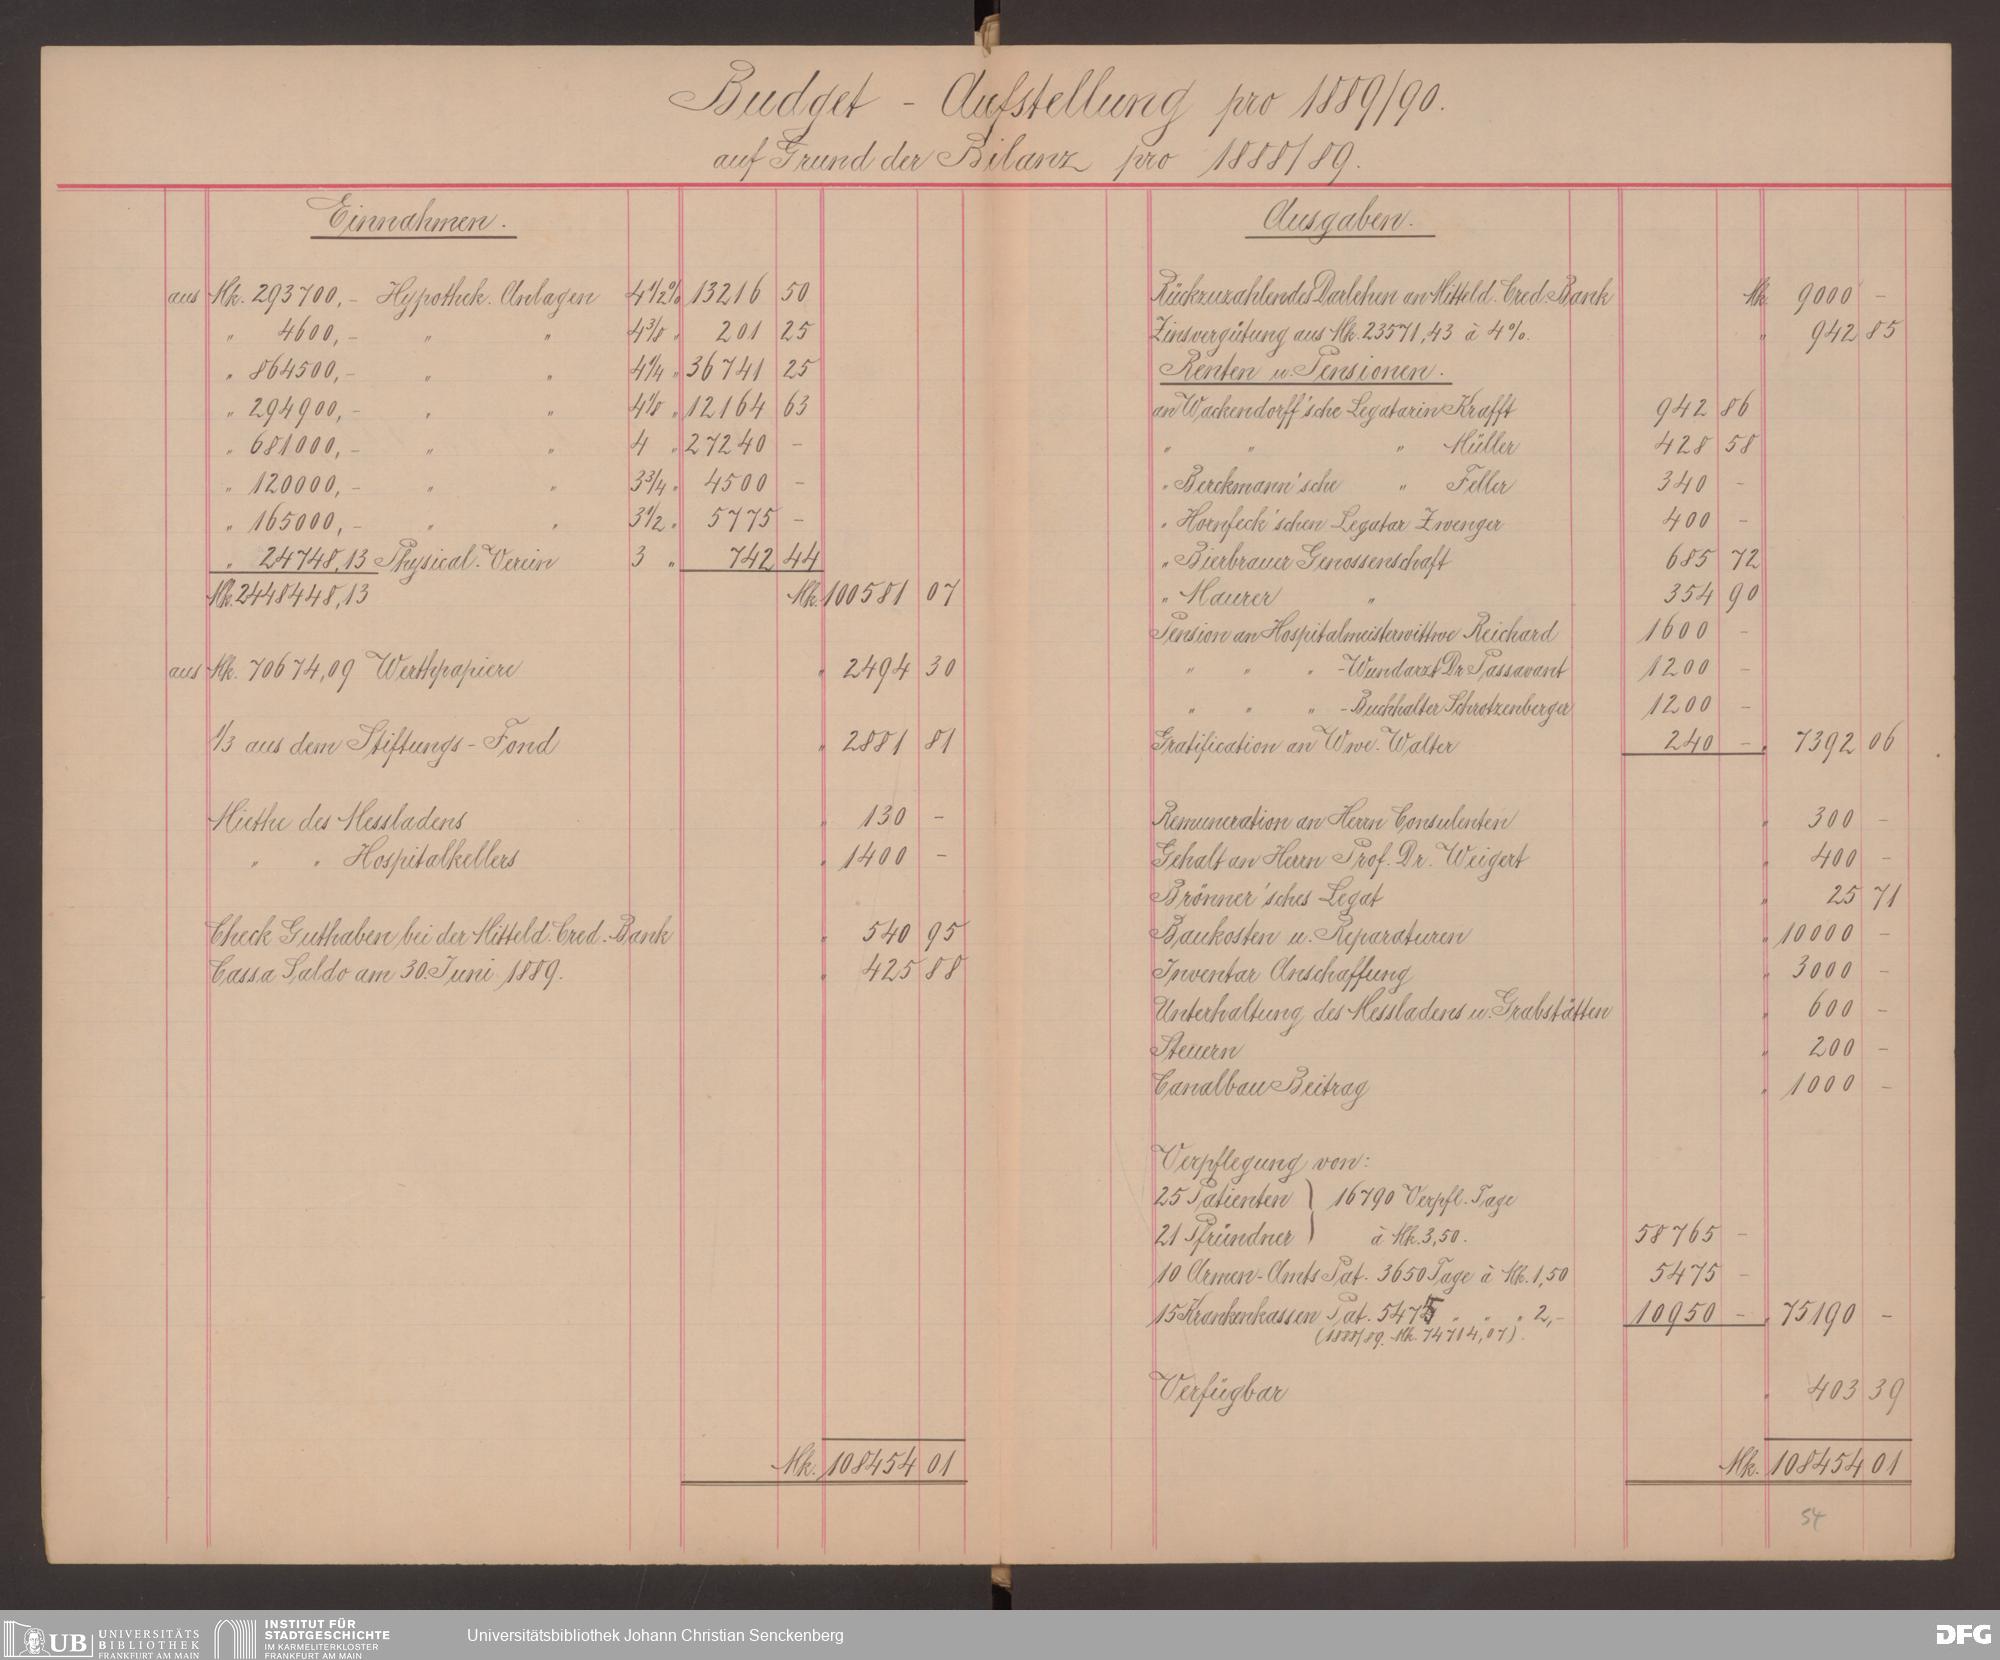 Budget - Aufstellung pro 1889/90.
auf Grund der Bilanz pro 1888/89.
Einnahmen.
aus Mk. 293700,- Hypothek. Anlagen 4 1/2 % 13216 50
" 4600,- " " 4 3/8 " 201 25
" 864500,- " " 4 1/4 " 36741 25
" 294900,- " " 4 1/8 " 12164 63
" 681000,- " " 4 " 27240 -
" 120000,- " " 3 3/4 " 4500 -
" 165000,- " " 3 1/2 " 5775 -
" 24748,13 Physical. Verein 3 " 742 44
Mk. 2448448,13 Mk. 100581 07
aus Mk. 70674,09 Werthpapiere " 2494 30
1/3 aus dem Stiftungs-Fond " 2881 81
Miethe des Messladens " 130 -
" " Hospitalkellers " 1400 -
Check Guthaben bei der Mitteld. Cred.-Bank " 540 95
Cassa Saldo am 30. Juni 1889. " 425 88
Mk. 108454 01
Ausgaben.
Rückzuzahlendes Darlehen an Mitteld. Cred. Bank Mk. 9000 -
Zinsvergütung aus Mk. 23571,43 à 4%. " 942 85
Renten u. Pensionen.
an Wackendorff'sche Legatarin Krafft 942 86
" " " Müller 428 58
" Berckmann'sche " Feller 340 -
" Hoenfeck'schen Legatar Zwenger 400 -
" Bierbrauer Genossenschaft 685 72
" Maurer " 354 90
Pension an Hospitalmeisterwittwe Reichard 1600 -
" " " - Wundarzt Dr Passavant 1200 -
" " " - Buchhalter Schrotzenberger 1200 -
Gratification an Wwe. Walter 240 - " 7392 06
Remuneration an Herrn Consulenten " 300 -
Gehalt an Herrn Prof. Dr. Weigert " 400 -
Brönner'sches Legat " 25 71
Baukosten u. Reparaturen " 10000 -
Inventar Anschaffung " 3000 -
Unterhaltung des Messladens u. Grabstätten " 600 -
Steuern " 200 -
Canalbau Beitrag " 1000 -
Verpflegung von:
25 Patienten } 16790 Verpfl. Tage
21 Pfründner } à Mk. 3,50. 58765 -
10 Armen-Amts Pat. 3650 Tage à Mk. 1,50 5475 -
15 Krankenkassen Pat. 5475 " " " 2,- 10950 - " 75190 -
(1888/89. Mk. 74714,07).
Verfügbar " 403 39
Mk. 108454 01
54
UB UNIVERSITÄTS
BIBLIOTHEK
FRANKFURT AM MAIN
INSTITUT FÜR
STADTGESCHICHTE
IM KARMELITERKLOSTER
FRANKFURT AM MAIN
Universitätsbibliothek Johann Christian Senckenberg
DFG